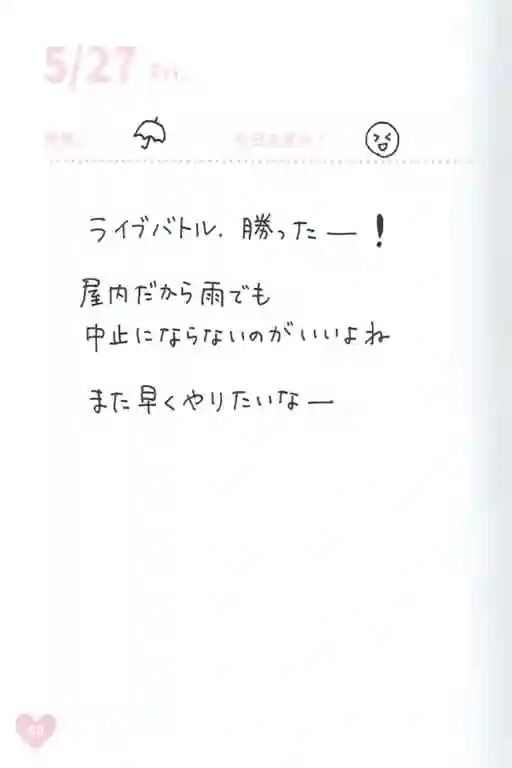 5/27 Fri.
ライブバトル、勝ったー！
屋内だから雨でも
中止にならないのがいいよね
また早くやりたいなー